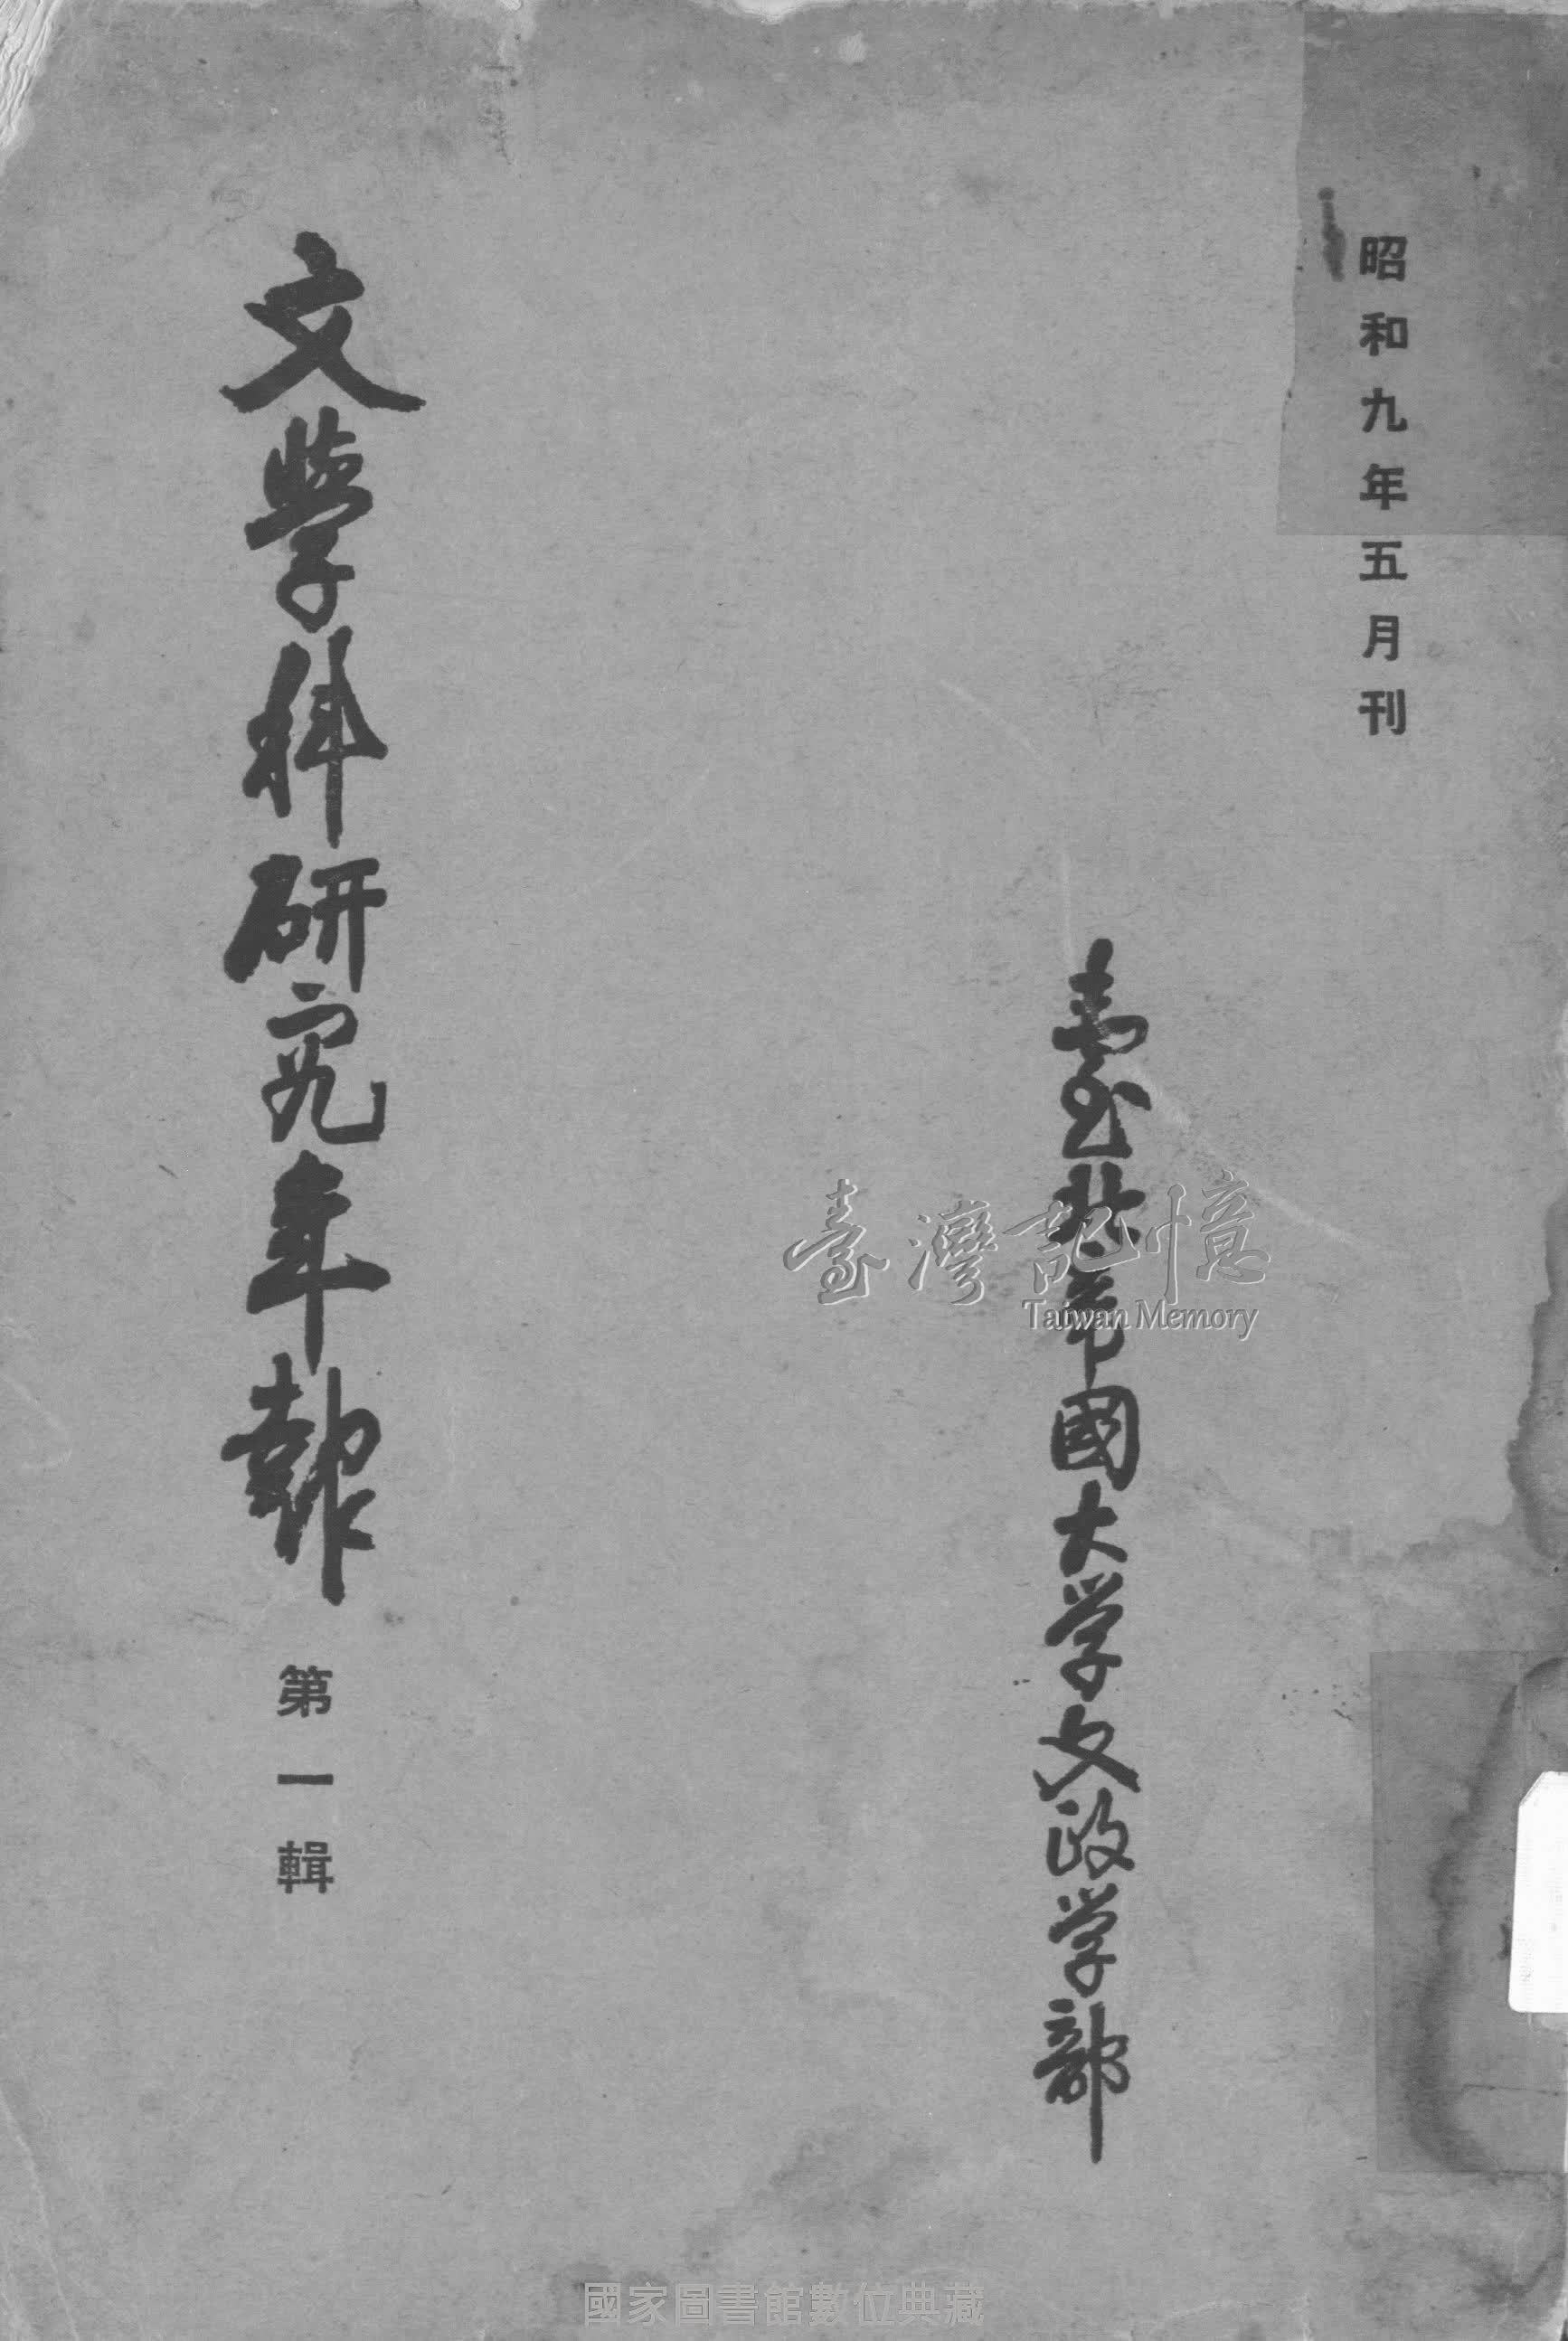 昭和九年五月刊
臺北帝國大学文政学部
文學科研究年報
第一輯
臺灣記憶
Taiwan Memory
國家圖書館數位典藏